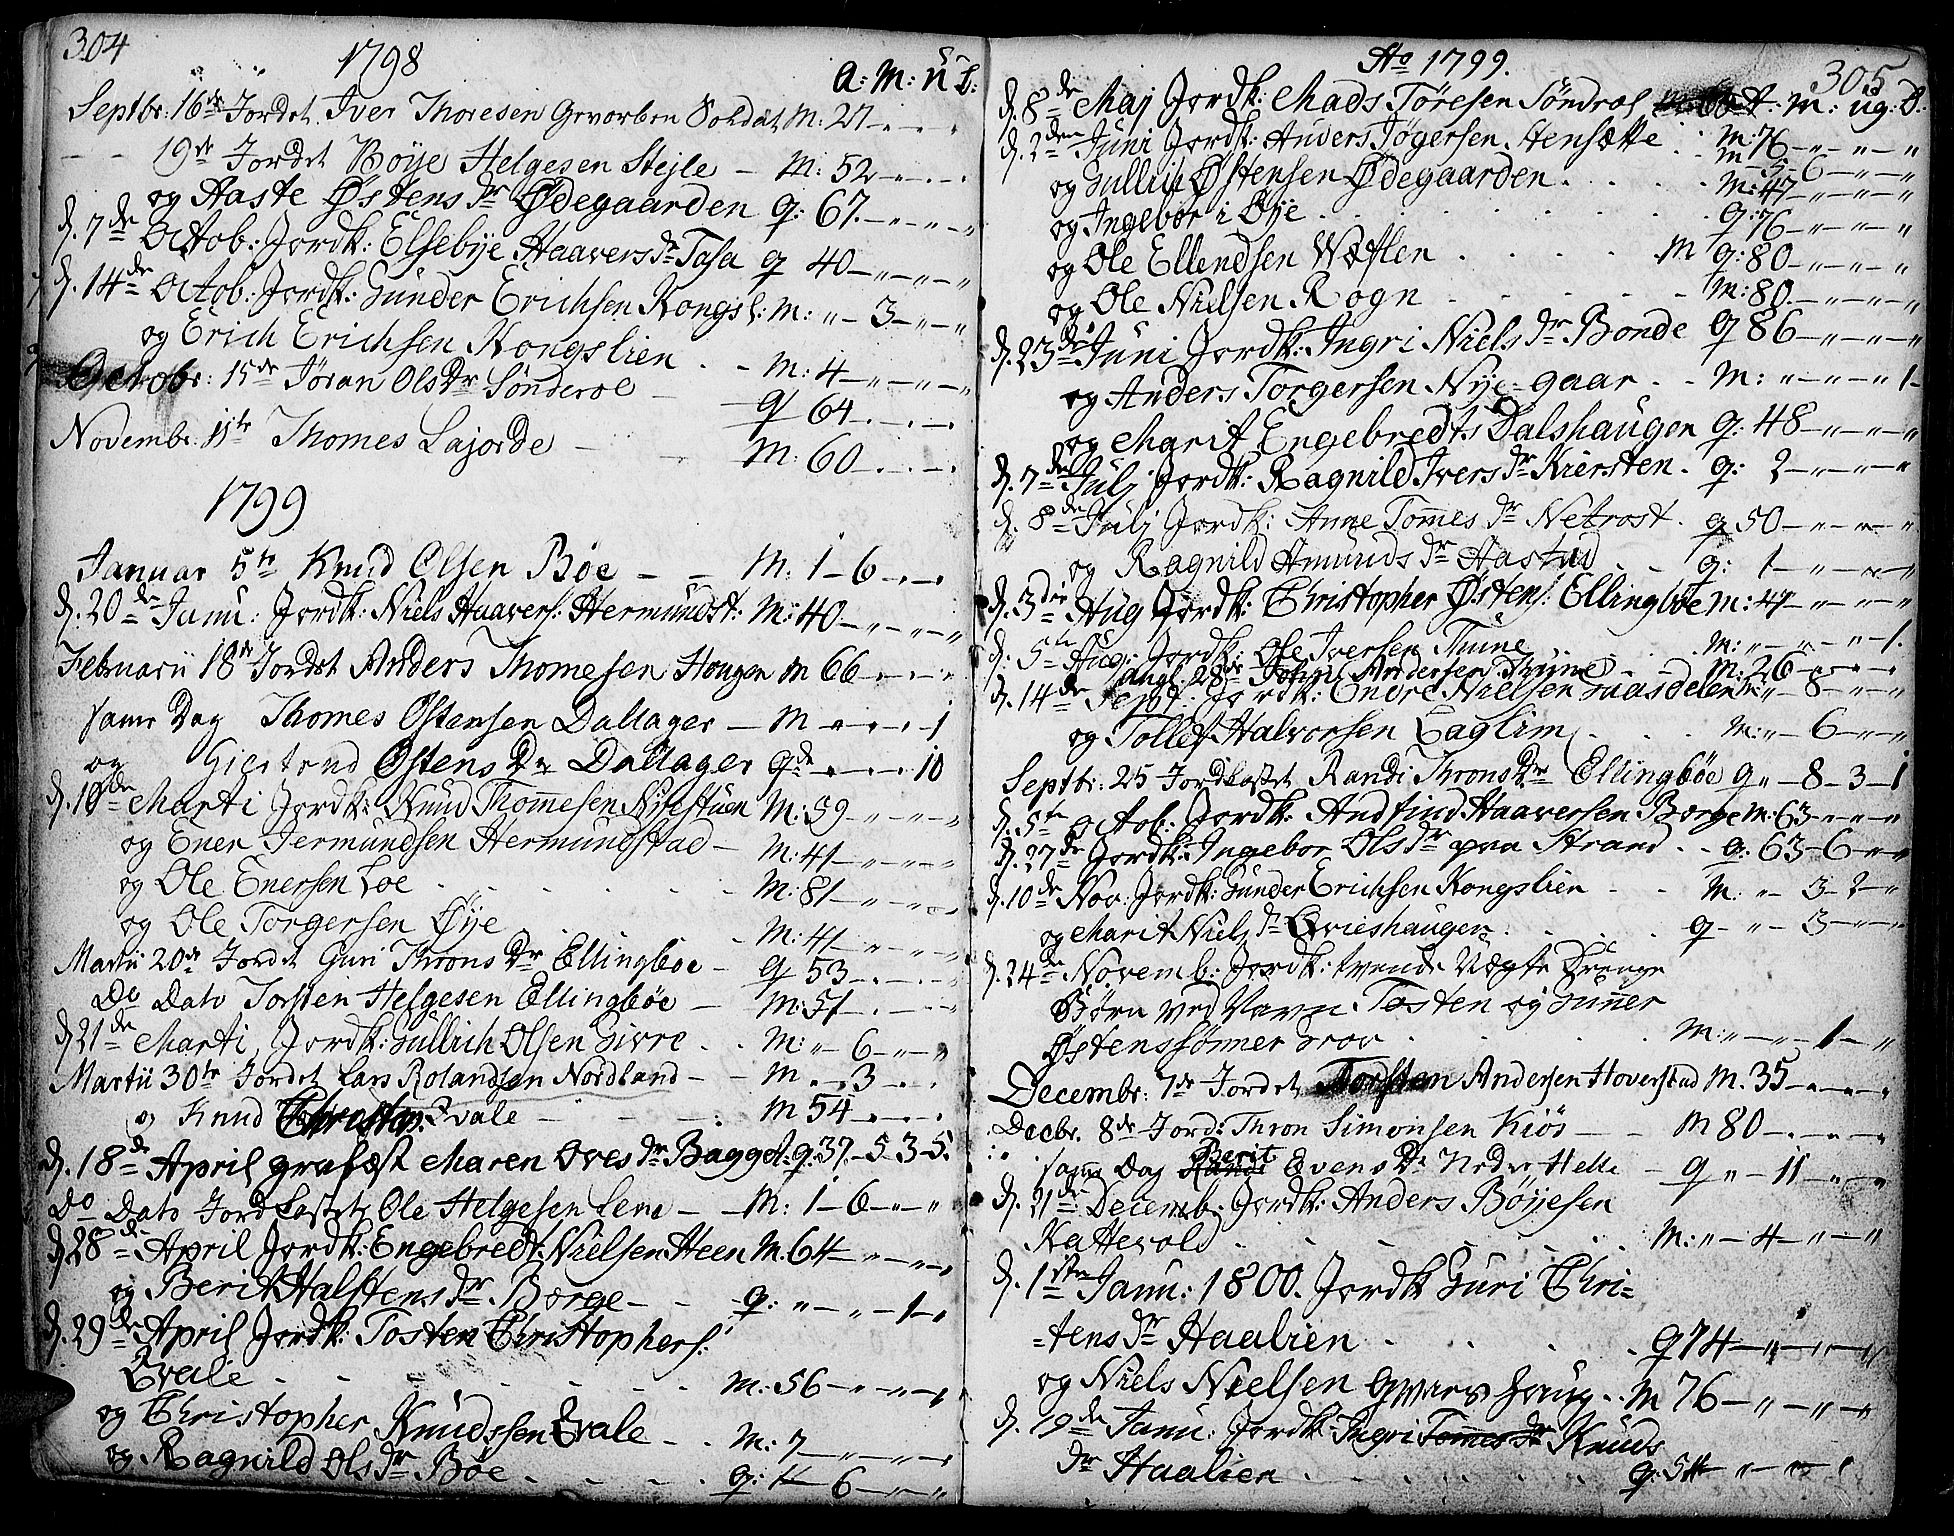 304
1798
A: M: U D:
Septbr: 16de Jordet Iver Thoresen Gevorben Soldat M: 27
19de Jordet Bøÿe Helgesen Stejle — M: 52 — „ — „ — „
og Aaste Østens Dr Ødegaarden q: 67. — „ — „ — „
d. 7de Octob: Jordk: Elsebÿe Haavers Dr Tasa q 40 — „ — „ — „
d. 14de Octob: Jordk: Gunder Erichsen Kongsl: M: „ — 3 — „ — „
og Erich Erichsen Kongslien - - M: 4 — „ — „ — „
Octobr: 15de Jøran Ols Dr Sønderol — q 64
Novembr: 11te Thomes Lajorde — M: 60
1799
Januar 5te Knud Olsen Bøe — — M: 1 - 6
d. 20de Janu: Jordk: Niels Haavers: Hermundst: M: 40 — „ — „ — „
Februarii 18de Jordet Anders Thomesen Hougen M 66
samme Dag Thomes Østensen Dallager — M 1
og Giertrud Østens Dr Dallager q 10
d. 10de Marti Jordk: Knud Thommesen Nÿestuen M: 59 — „ — „ — „
og Ener Jermundsen Hermundstad — M: 41 — „ — „ — „
og Ole Enersen Loe . . . M: 81 — „ — „ — „
og Ole Torgersen Øÿe . . M: 41 — „ — „ — „
Martii 20de Jordet Guri Throns Dr Ellingbøe — q 53
Do Dato Torsten Helgesen Ellingbøe — M: 51
d. 21de Marti, Jordk: Gullrich Olsen Givre . . M: „ — 6 — „ — „
Martii 30te Jordet Lars Rolandsen Nordland — M 3
og Knud Christop. Qvale — M 54
d. 18de April grafæst Maren Oves Dr Bagget q: 37. — 5 3 5.
Do Dato Jordkastet Ole Helgesen Lene — M: 1 — 6 — „ — „
d. 28de April Jordk: Engebredt Nielsen Heen M. 64 — „ — „ — „
og Berit Halstens Dr Borge — - q: „ — „ — 1 — „
d. 29de April Jordk: Tosten Christophers:
Qvale . . . M: 56 — „ — „ — „
og Christopher Knudssen Qvale — . M: 7 — „ — „ — „
og Ragnild Ols Dr Bøe . . . q: „ — 6 — „ — „
Ao 1799.
305
d. 8de Maj Jordk: Mads Tøresen Søndrol A: M: ug: D:
M: 76 — „ — „ — „
d. 2den Juni Jordk: Anders Jøgersen Stensætte . . M 6 — „ — „
og Gullich Østensen Ødegaarden . . . M: 47 — „ — „ — „
og Ingebor i Øÿe . . . q: 76 — „ — „ — „
og Ole Ellendsen Wæflen . . . M q: 80 — „ — „ — „
og Ole Nielsen Rogn . . . M: 80. — „ — „ — „
d. 23de Juni Jordk: Ingri Niels Dr Bonde q 86 — „ — „ — „
og Anders Torgersen Nÿe-gaar . . M: „ — „ — „ 1
og Marit Engebredts Dalshaugen q: 48 — „ — „ — „
d. 7de Julj Jordk: Ragnild Ivers Dr Kiersten . q: 2 — „ — „ — „
d. 8de Julj Jordk: Anne Tommes Dr Netrost . q 50 — „ — „ — „
og Ragnild Amunds Dr Hastad . . q: 1 — „ — „ — „
d. 3die Aug Jordk: Christopher Østens: Ellingbøe M: 41 — „ — „ — „
d. 5te Aug: Jordk: Ole Iversen Thune . . . M: „ — „ — „ — 1.
aug: 28de John Andersen Thune — M: 26
d. 14de Sept. Jordk: Endre Nielsen Gaasdelen M: „ — 8 — „ — „
og Tollef Halvorsen Laglim . . M: „ — 6 — „ — „
Septbr: 25 Jordkastet Randi Throns Dr Ellingbøe q „ — 8 — 3 — 1
d. 5te Octob: Jordk: Andfind Haaversen Borge M: 63 — „ — „ — „
d. 27de Jordk: Ingebor Ols Dr paa Strand . . q: 63 — 6 — „ — „
d. 10de Nov: Jordk: Gunder Erichsen Kongslien . . M: „ — 3 — 2 — „
og Marit Niels Dr Qvieshaugen . . . q — „ — 3 — „ — „
d. 24de Novemb: Jordk: tvende Uægte Drenge
Børn ved Navn Tosten og Gunner
Østenssønner Drov . . . M: „ — „ — 1 — „
Decembr: 7de Jordet Torsten Andersen Hoverstad M. 35
Decbr. 8de Jord: Thron Simonsen Kiøs — M 80
samme Dag Rande Berit Evens Dr Nedre Helle — q „ — 11 — „
d. 21de Decemb: Jordk: Anders Bøÿesen
Kattevold . . . M: „ — 4 — „ — „
d. 1ste Janu: 1800. Jordk Guri Chri=
=tens Dr Haalien . . . q 74 — „ — „ — „
og Niels Nielsen Qvarshaug . . M 76 — „ — „ — „
d. 19de Janu: Jordk: Ingri Tommes Dr Knuds
Dr Haalien . . . q: 54 — „ — „ — „